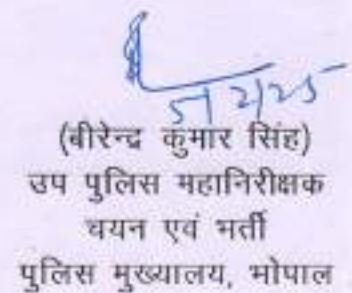 (बीरेन्द्र कुमार सिंह)
उप पुलिस महानिरीक्षक
चयन एवं भर्ती
पुलिस मुख्यालय, भोपाल